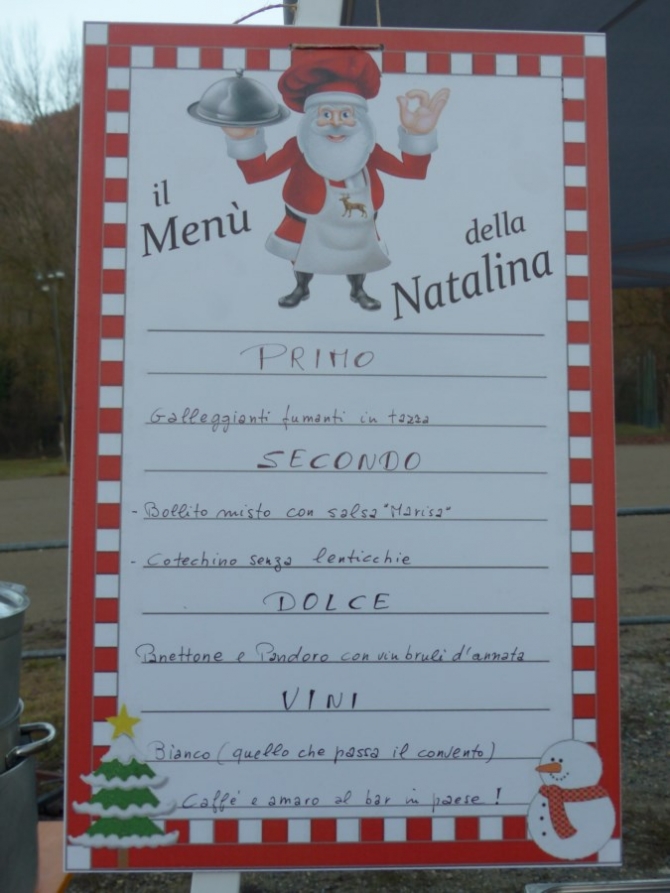 il
Menù
della
Natalina
PRIMO
Galleggianti fumanti in tazza
SECONDO
- Bollito misto con salsa "Marisa"
- Cotechino senza lenticchie
DOLCE
Panettone e Pandoro con vin brulì d'annata
VINI
Bianco (quello che passa il convento)
Caffé e amaro al bar in paese!